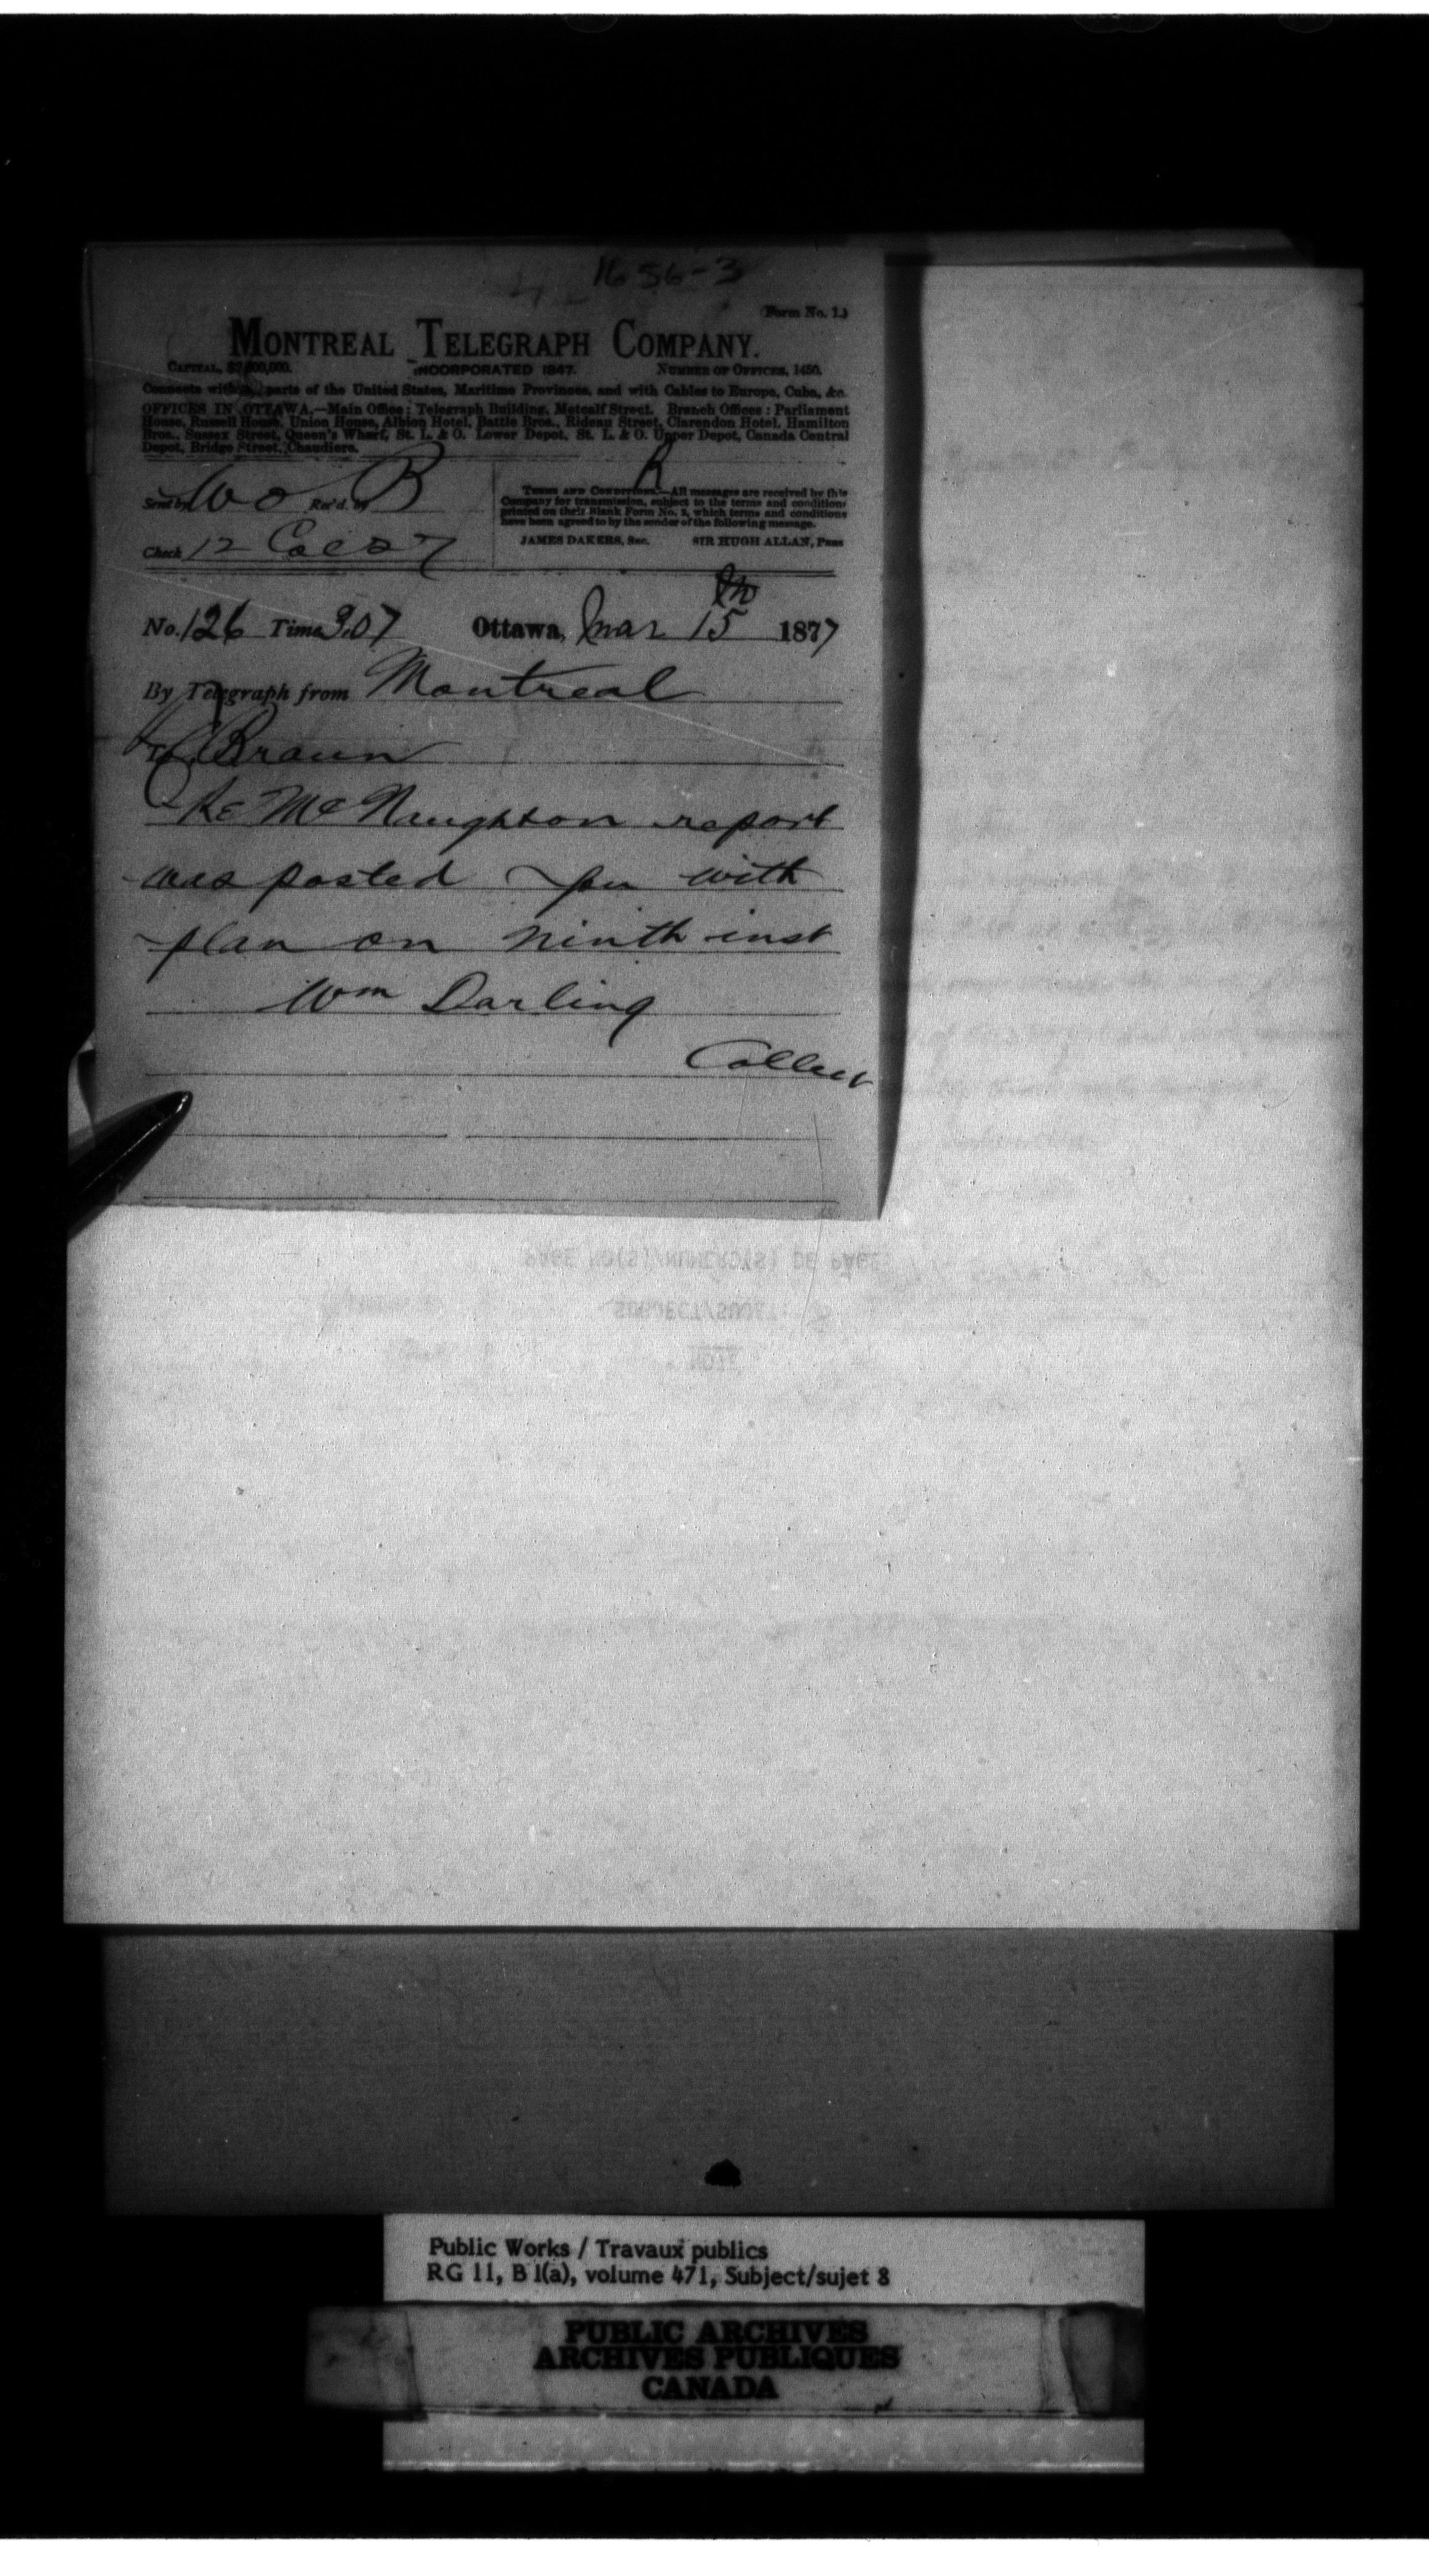 1656-3
Form No. 1.
MONTREAL TELEGRAPH COMPANY.
CAPITAL, $2,000,000. INCORPORATED 1847. NUMBER OF OFFICES, 1450.
Connects with all parts of the United States, Maritime Provinces, and with Cables to Europe, Cuba, &c.
OFFICES IN OTTAWA.—Main Office: Telegraph Building, Metcalf Street. Branch Offices: Parliament
House, Russell House, Union House, Albion Hotel, Battle Bros., Rideau Street, Clarendon Hotel, Hamilton
Bros., Sussex Street, Queen's Wharf, St. L. & O. Lower Depot, St. L. & O. Upper Depot, Canada Central
Depot, Bridge Street, Chaudiere.
Sent by Wo Rec'd. by B
Check 12
TERMS AND CONDITIONS.—All messages are received by this
Company for transmission, subject to the terms and conditions
printed on their Blank Form No. 2, which terms and conditions
have been agreed to by the sender of the following message.
JAMES DAKERS, Sec. SIR HUGH ALLAN, Pres
No. 126 Time 3.07 Ottawa, Mar 15th 1877
By Telegraph from Montreal
To Braun
Re McNaughton report
was posted you with
plan on ninth inst
Wm Darling
Collect
PAGE NO(S)/NUMERO(S) DE PAGE
SUBJECT/SUJET
Public Works / Travaux publics
RG 11, B 1(a), volume 471, Subject/sujet 8
PUBLIC ARCHIVES
ARCHIVES PUBLIQUES
CANADA